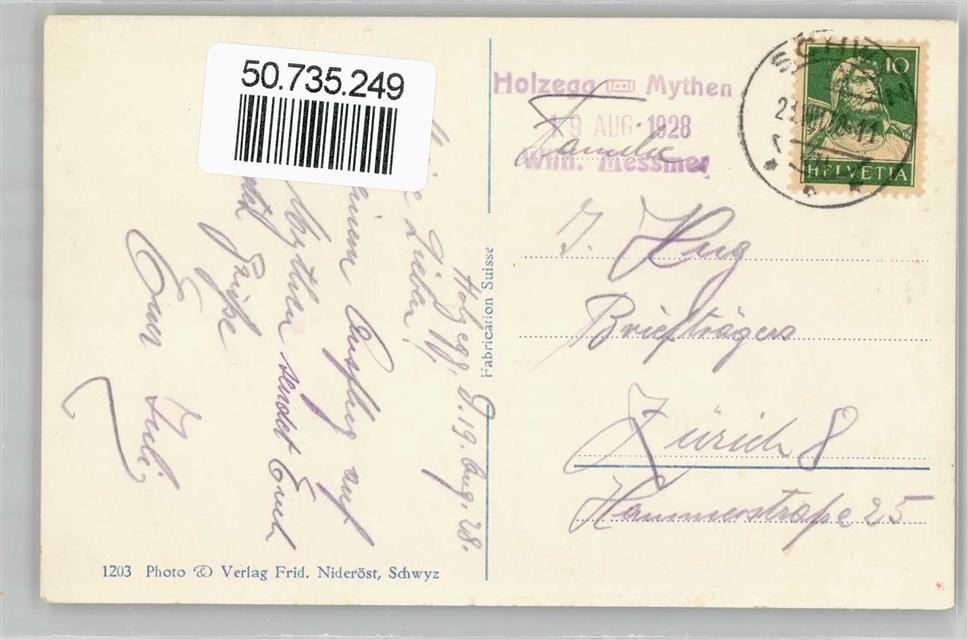 50.735.249
Holzegg Mythen
19 AUG 1928
Wilh. Messmer
10
HELVETIA
Familie
J. Hug
Briefträgers
Zürich 8
Hammerstraße 25
Holzegg, d. 19. Aug. 28.
Lieben!
Ausflug auf
Mythen sendet Euch
Grüße
Euer Juli
Fabrication Suisse
1203 Photo Verlag Frid. Nideröst, Schwyz